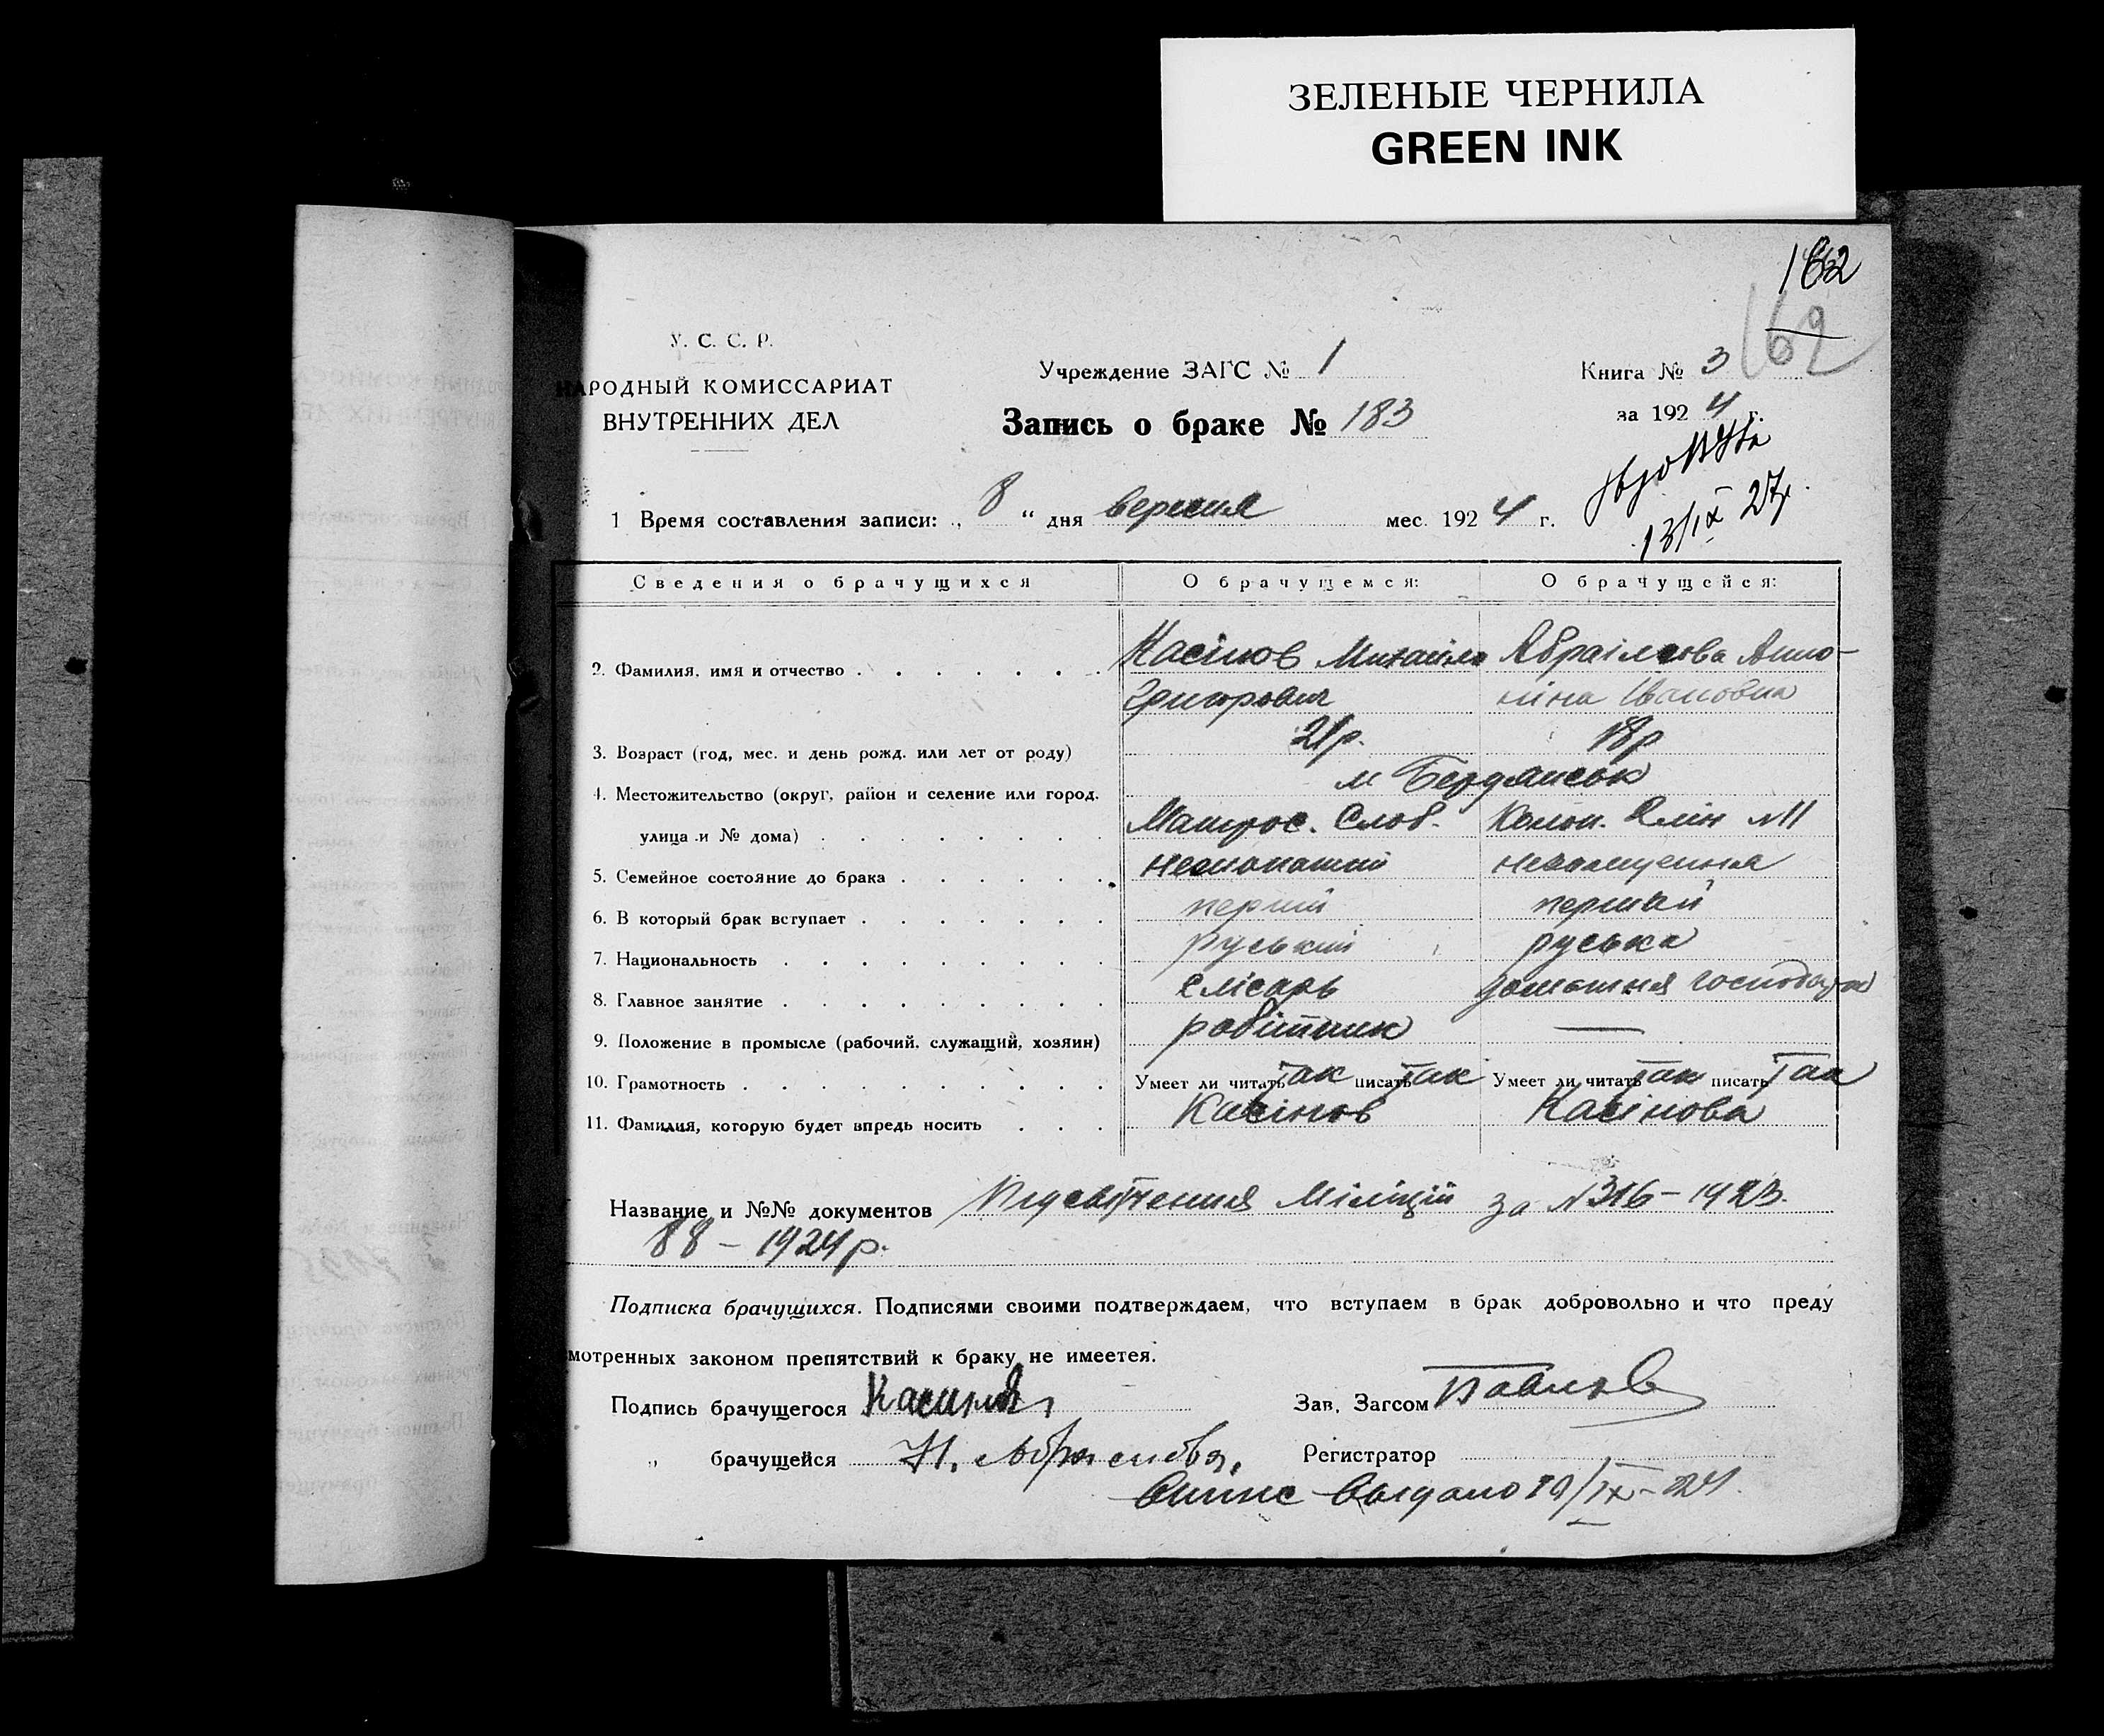 ЗЕЛЕНЫЕ ЧЕРНИЛА
GREEN INK
162
162
У. С. С. Р.
НАРОДНЫЙ КОМИССАРИАТ
ВНУТРЕННИХ ДЕЛ
Учреждение ЗАГС № 1
Запись о браке № 183
Книга № 3
за 1924 г.
13/IX 27р.
1 Время составления записи: „ 8 “ дня вересня мес. 1924 г.
Сведения о брачущихся О брачущемся: О брачущейся:
2. Фамилия, имя и отчество Касінов Михайло Абраімова Анто-
Григорович ніна Івановна
3. Возраст (год, мес. и день рожд. или лет от роду) 21р. 18р
4. Местожительство (округ, район и селение или город, м Бердянськ
улица и № дома) Матрос. Слоб. №11
5. Семейное состояние до брака незамужня
6. В который брак вступает перший перший
7. Национальность руський руська
8. Главное занятие слісарь домашня господарка
9. Положение в промысле (рабочий, служащий, хозяин) робітник —
10. Грамотность Умеет ли читать так писать так Умеет ли читать так писать так
11. Фамилия, которую будет впредь носить Касінов Касінова
Название и №№ документов Підсвітчення Міліції за №316 – 1923.
88 – 1924р.
Подписка брачущихся. Подписями своими подтверждаем, что вступаем в брак добровольно и что преду
смотренных законом препятствий к браку не имеется.
Подпись брачущегося Касинов Зав. Загсом Павлов
„ брачущейся Регистратор
Выдано /IX – 24.